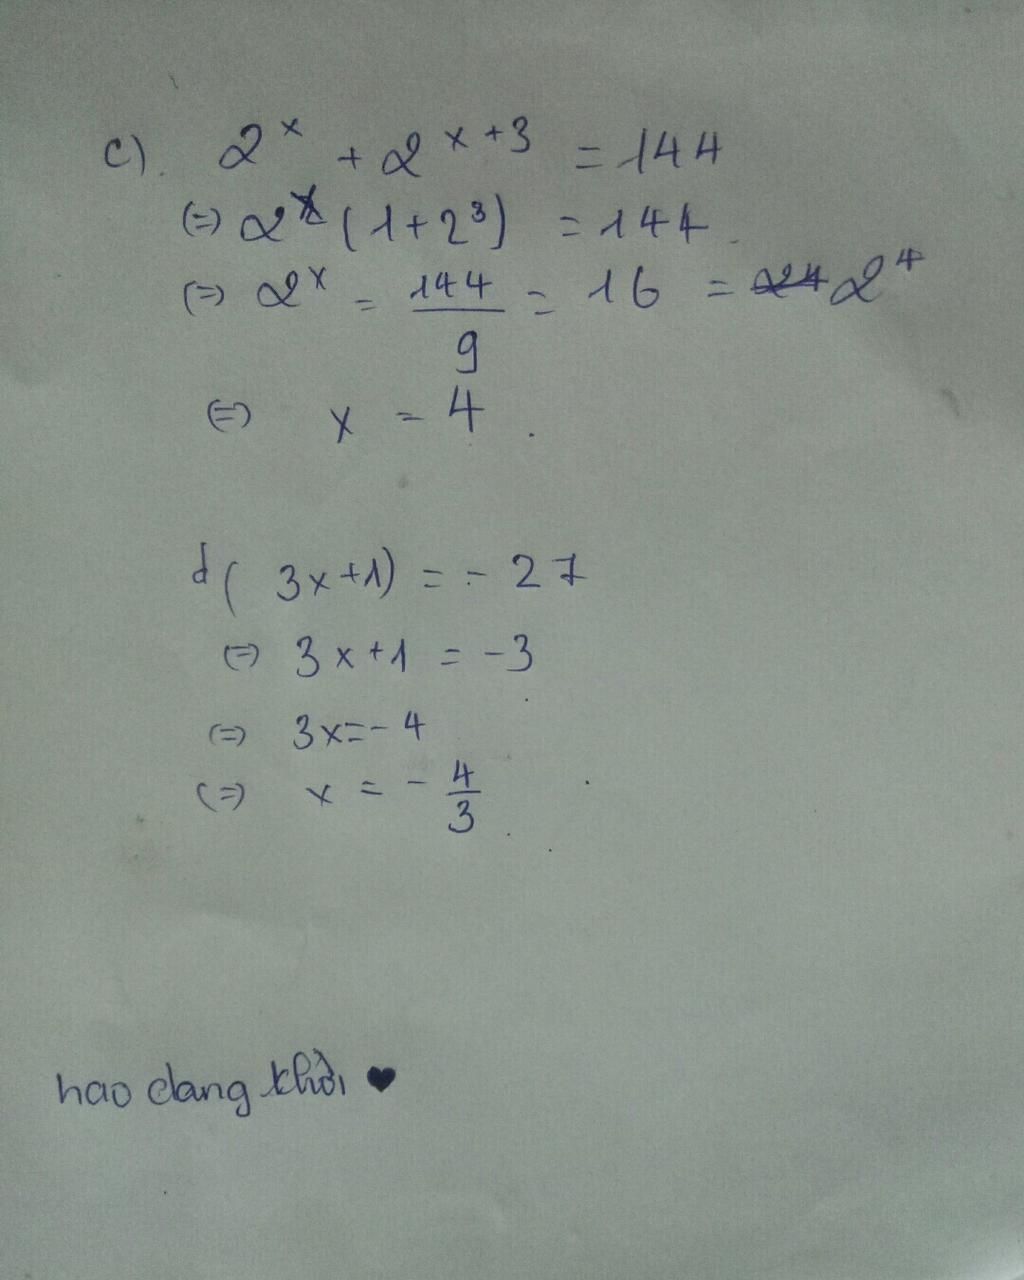 c). 2^x + 2^{x+3} = 144
(=) 2^x (1+2^3) = 144
(=) 2^x = 144/9 = 16 = 2^4
(=) x = 4.
d( 3x+1) = - 27
(=) 3x+1 = -3
(=) 3x=- 4
(=) x = - 4/3
hao dang khởi ♥